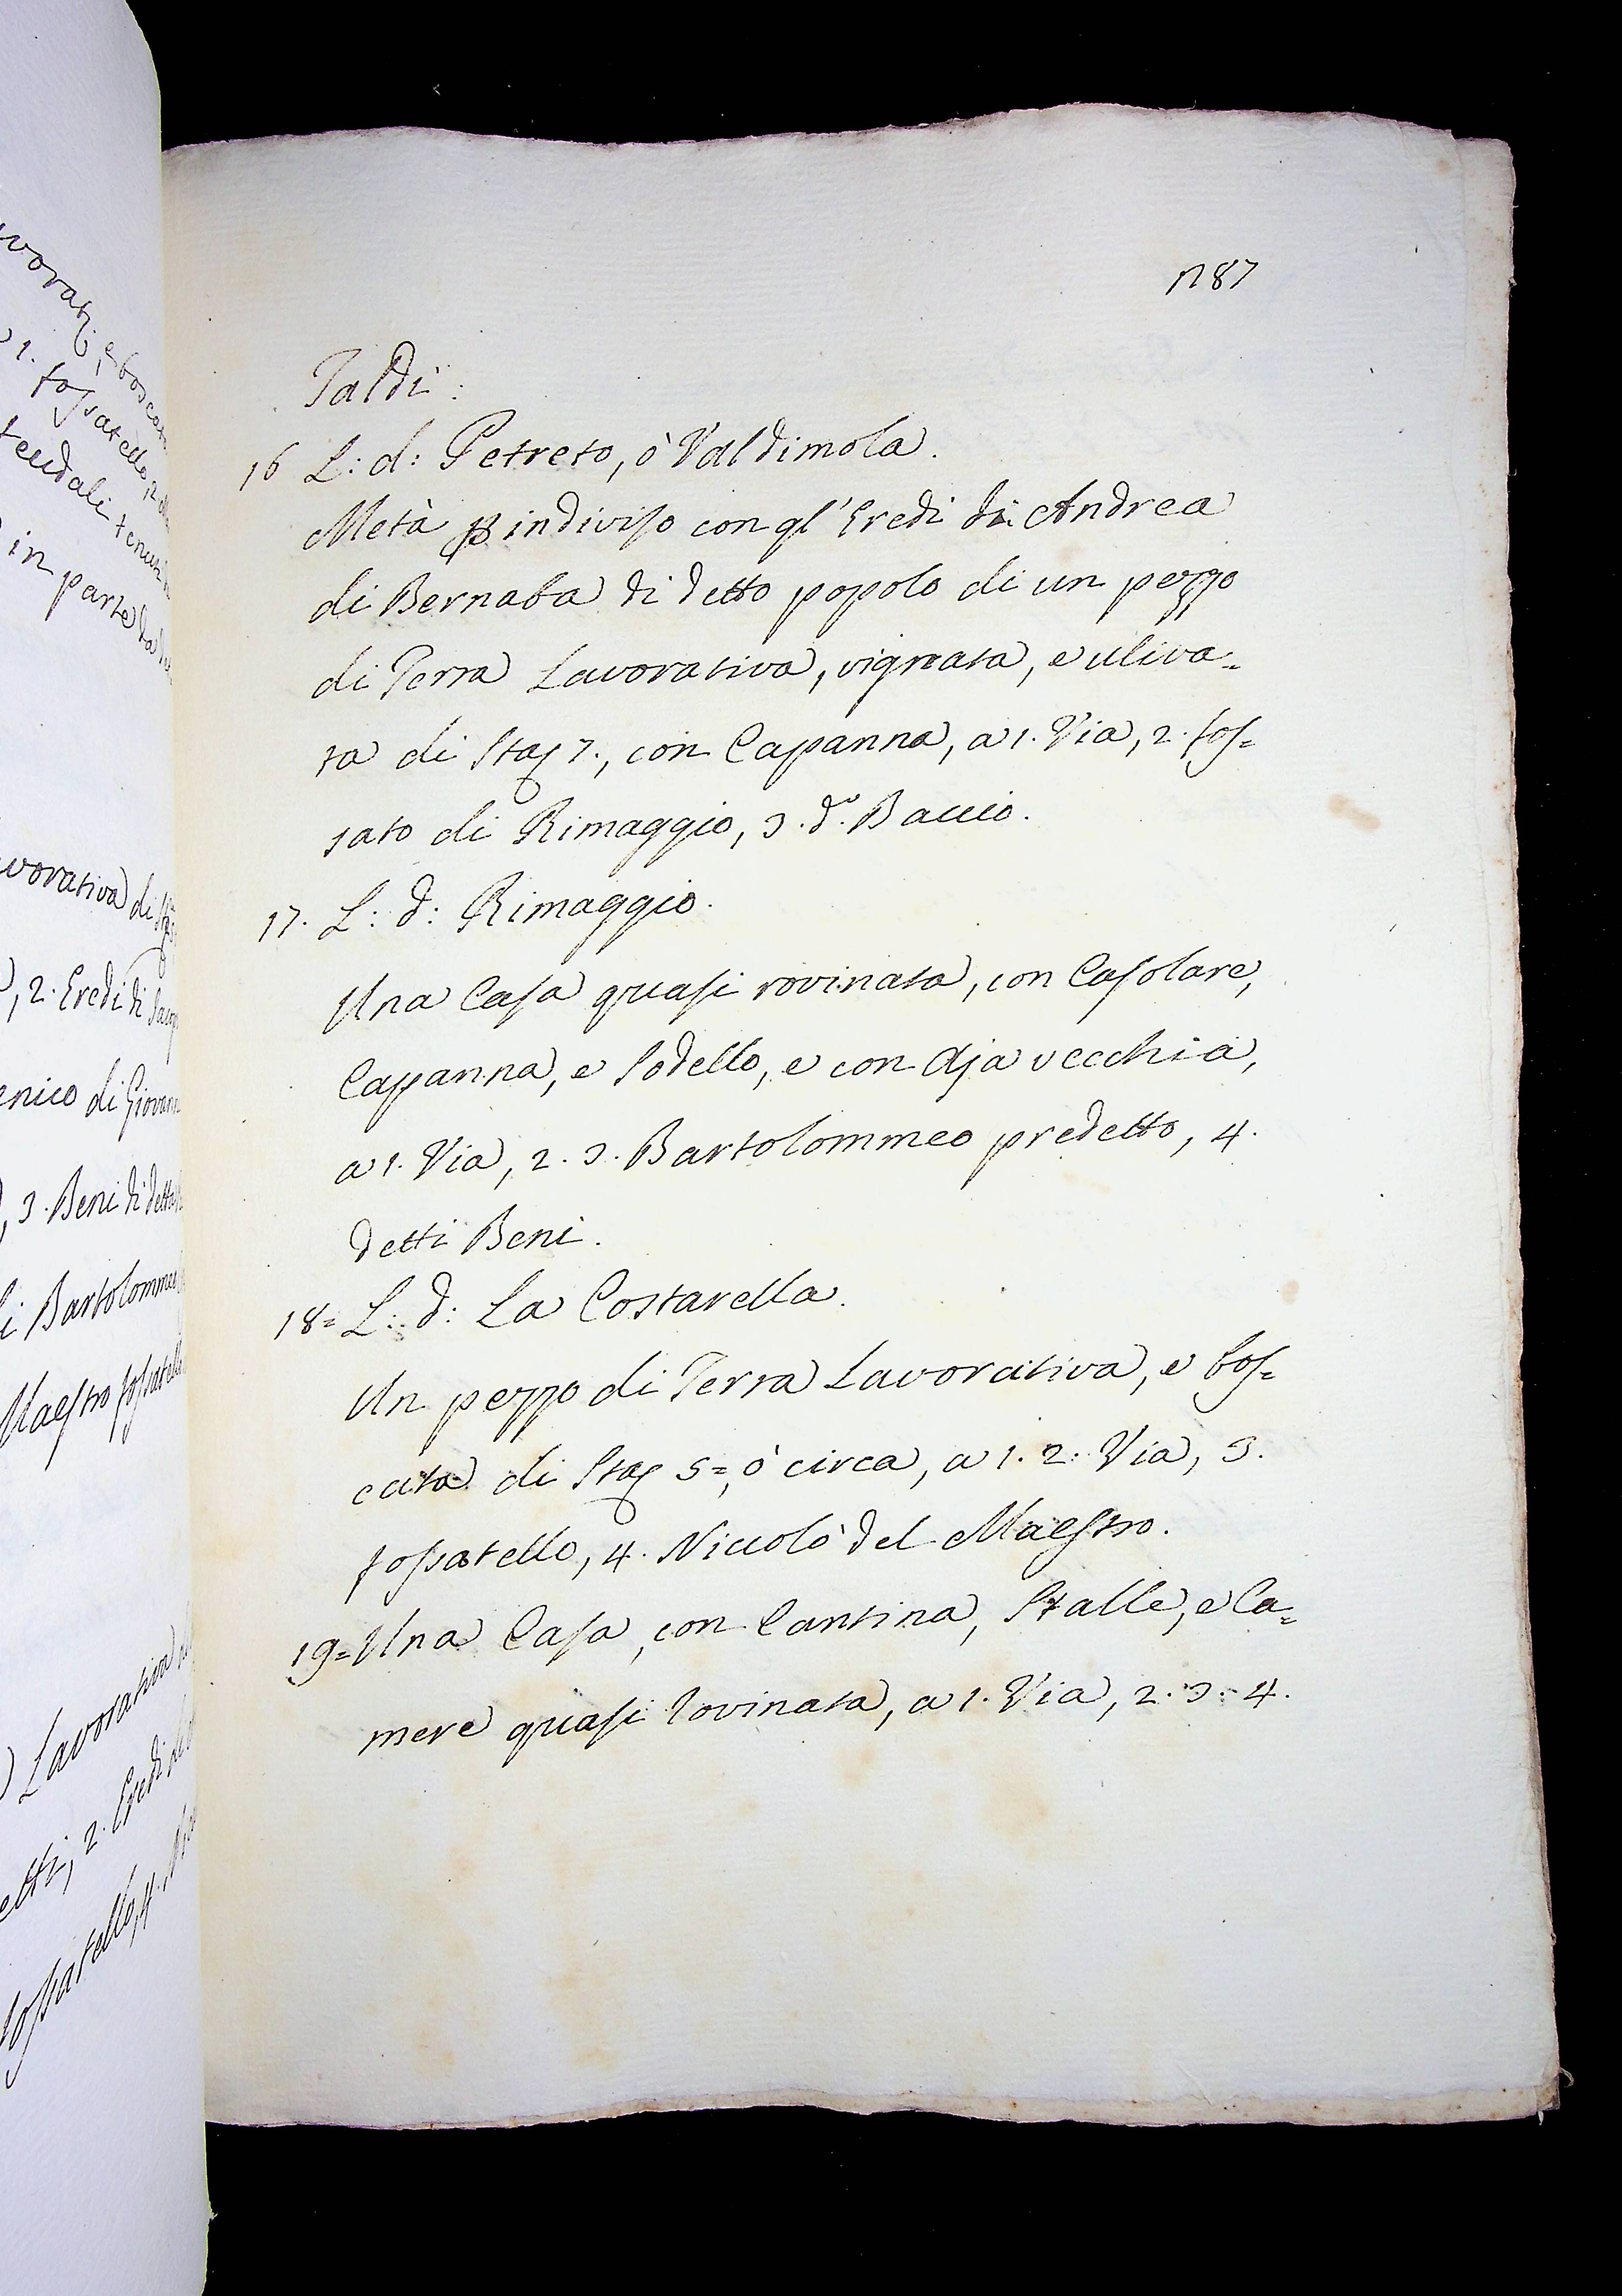 1187
Taldi:
16 L: d: Petreto, ò Valdimola.
Metà p indiviso con gl' Eredi di Andrea
di Bernaba di detto popolo di un pezzo
di Terra Lavorativa, vignata, e uliva=
ta di Sta 7., con Capanna, a 1. Via, 2. fos=
sato di Rimaggio, 3. do. Baccio.
17. L: d: Rimaggio.
Una Casa quasi rovinata, con Casolare,
Capanna, e Sodello, e con Aja vecchia,
a 1. Via, 2. 3. Bartolommeo predetto, 4.
detti Beni.
18= L: d: La Costarella.
Un pezzo di Terra Lavorativa, e bos=
cata di Sta 5=, ò circa, a 1. 2. Via, 3.
fossatello, 4. Niccolò del Maestro.
19= Una Casa, con Cantina, Stalle, e Ca=
mere quasi rovinata, a 1. Via, 2. 3. 4.
vorati, e boscati
1. fossatello, 2.
feudali tenuti
in parte da
vorativa di
, 2. Eredi di
enico di Giovann
, 3. Beni di detta
di Bartolomme
Maestro fossatell
Lavorativa
etti, 2. Eredi
fossatello, 4.